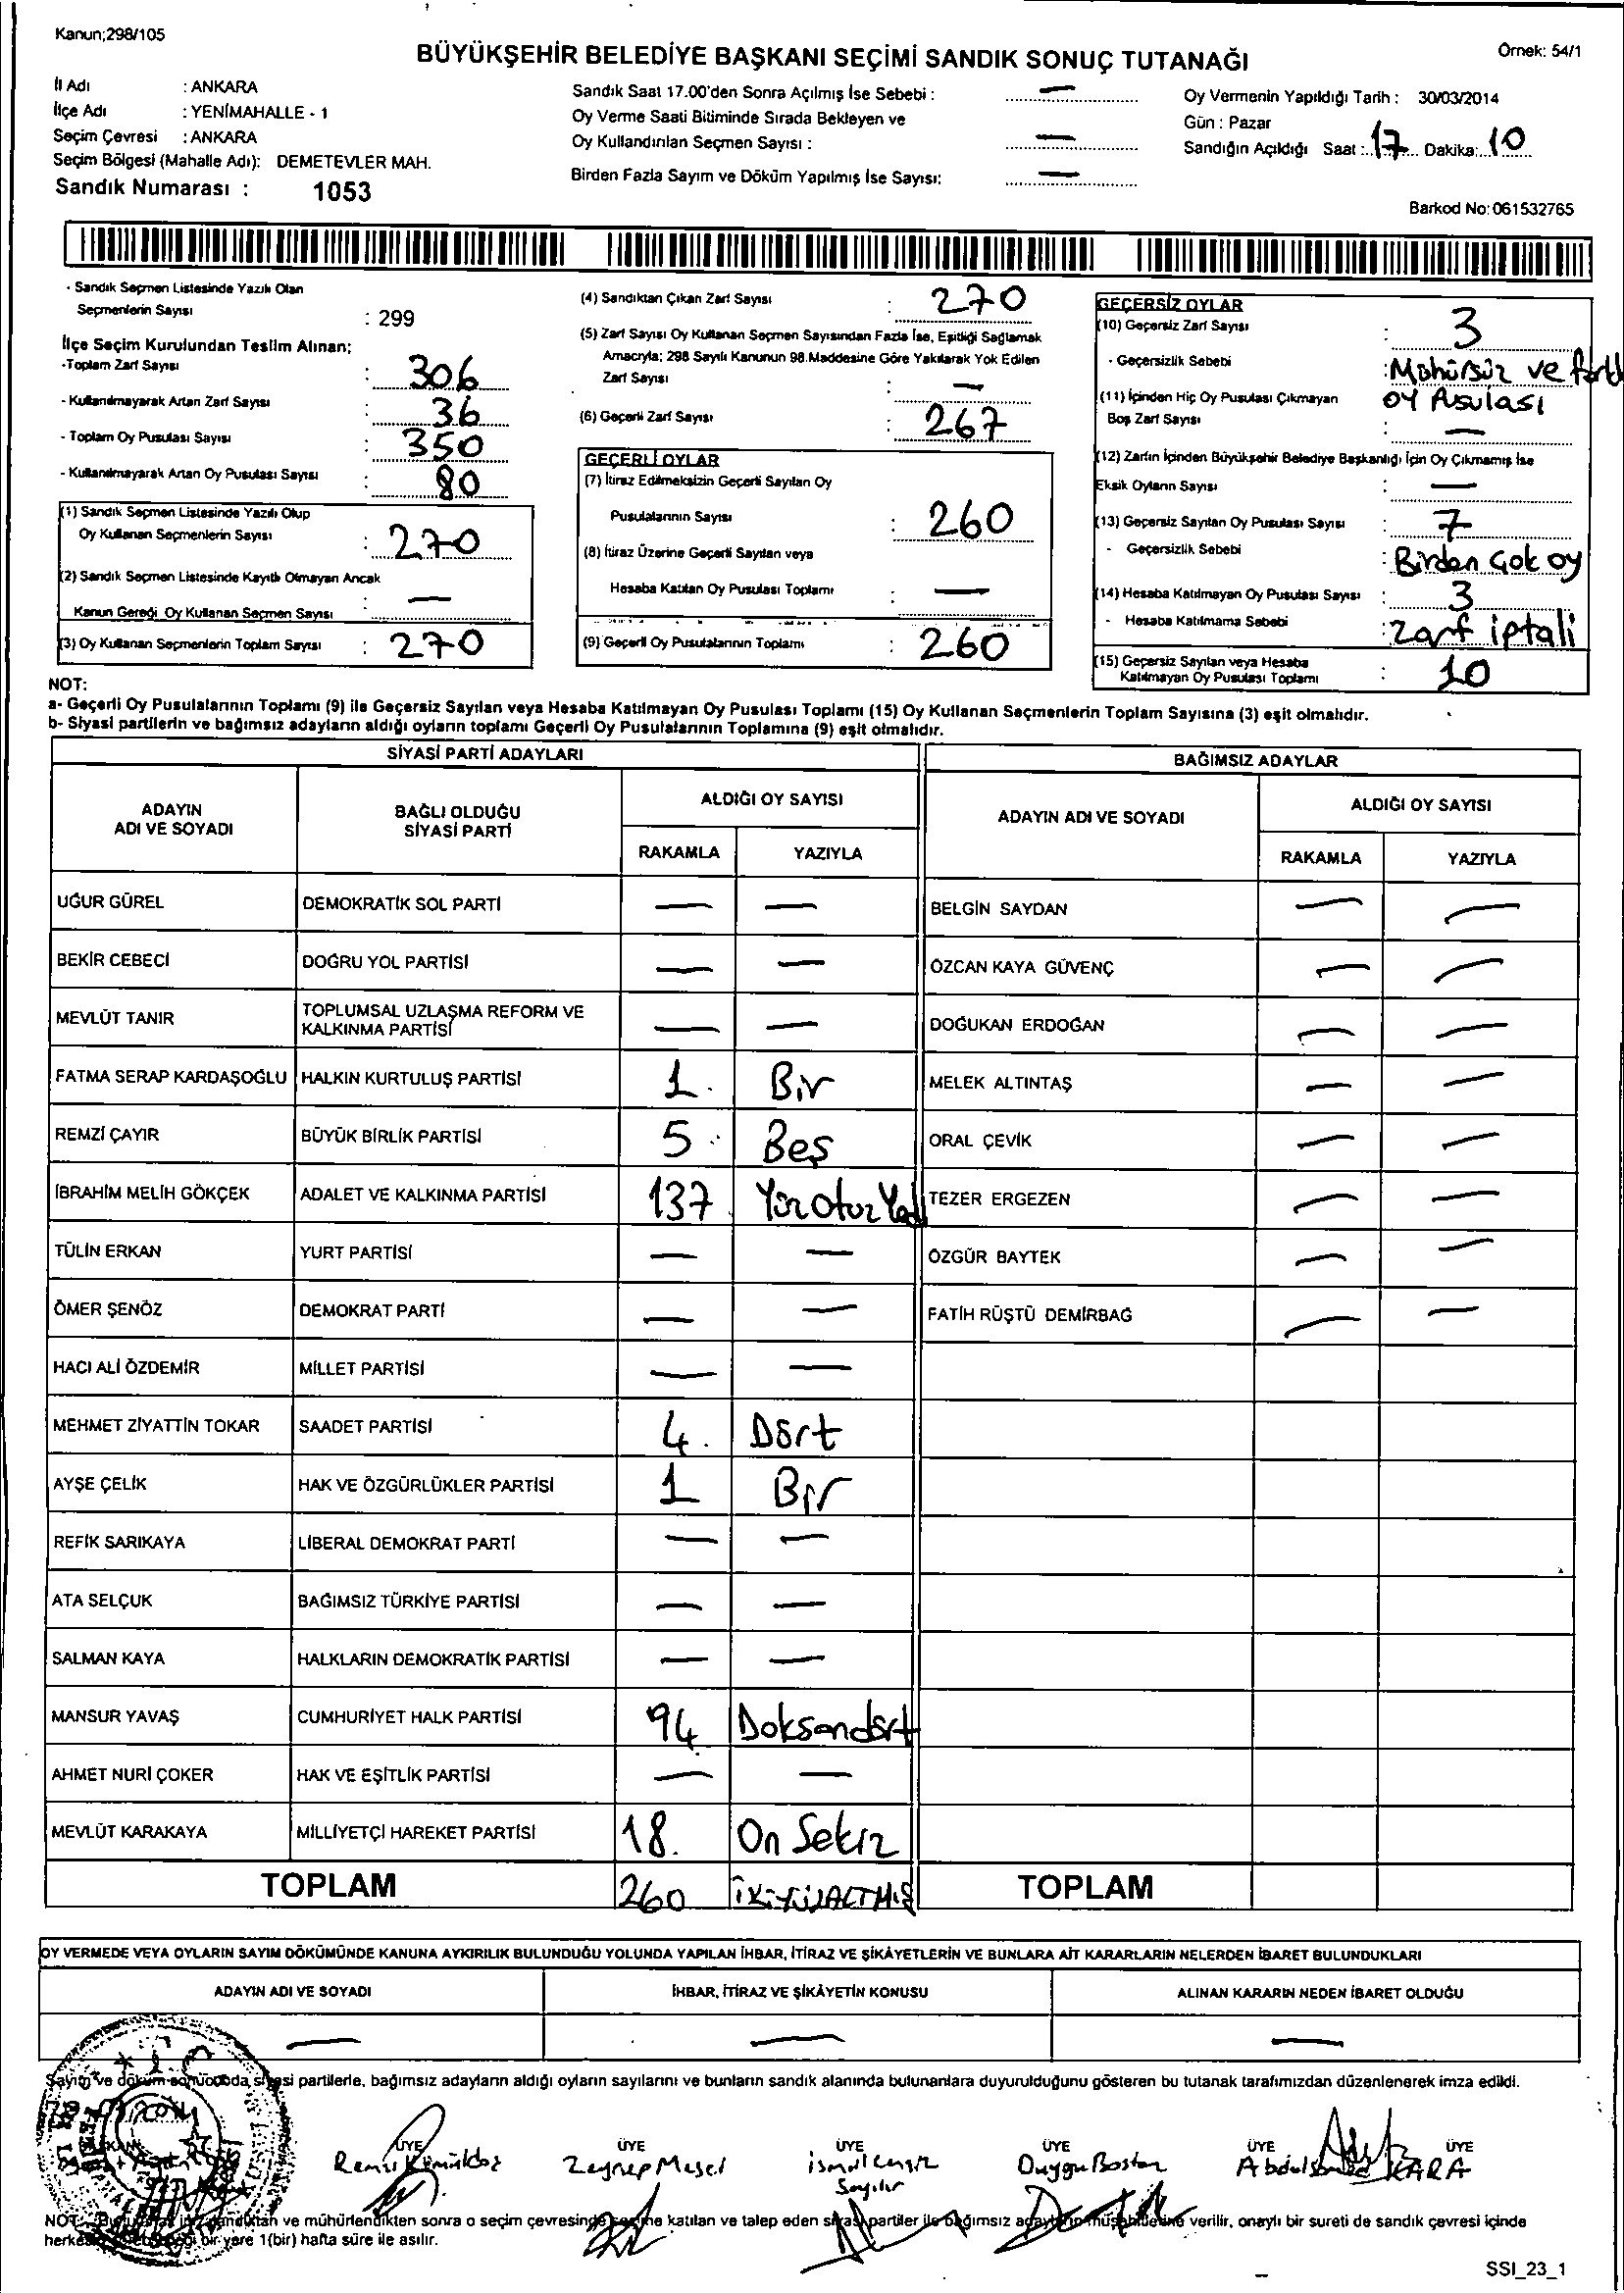 Kanun;298/105
BÜYÜKŞEHİR BELEDİYE BAŞKANI SEÇİMİ SANDIK SONUÇ TUTANAĞI
Örnek: 54/1
İl Adı : ANKARA
İlçe Adı : YENİMAHALLE - 1
Seçim Çevresi : ANKARA
Seçim Bölgesi (Mahalle Adı): DEMETEVLER MAH.
Sandık Numarası : 1053
Sandık Saat 17.00'den Sonra Açılmış İse Sebebi : —
Oy Verme Saati Bitiminde Sırada Bekleyen ve
Oy Kullandırılan Seçmen Sayısı : —
Birden Fazla Sayım ve Döküm Yapılmış İse Sayısı: —
Oy Vermenin Yapıldığı Tarih : 30/03/2014
Gün : Pazar
Sandığın Açıldığı Saat : 17 Dakika: 10
Barkod No: 061532765
- Sandık Seçmen Listesinde Yazılı Olan
Seçmenlerin Sayısı : 299
İlçe Seçim Kurulundan Teslim Alınan;
-Toplam Zarf Sayısı : 306
- Kullanılmayarak Artan Zarf Sayısı : 36
- Toplam Oy Pusulası Sayısı : 350
- Kullanılmayarak Artan Oy Pusulası Sayısı : 80
(1) Sandık Seçmen Listesinde Yazılı Olup
Oy Kullanan Seçmenlerin Sayısı : 270
(2) Sandık Seçmen Listesinde Kayıtlı Olmayan Ancak
Kanun Gereği Oy Kullanan Seçmen Sayısı : —
(3) Oy Kullanan Seçmenlerin Toplam Sayısı : 270
(4) Sandıktan Çıkan Zarf Sayısı : 270
(5) Zarf Sayısı Oy Kullanan Seçmen Sayısından Fazla İse, Eşitliği Sağlamak
Amacıyla; 298 Sayılı Kanunun 98.Maddesine Göre Yakılarak Yok Edilen
Zarf Sayısı : —
(6) Geçerli Zarf Sayısı : 267
GEÇERLİ OYLAR
(7) İtiraz Edilmeksizin Geçerli Sayılan Oy
Pusulalarının Sayısı : 260
(8) İtiraz Üzerine Geçerli Sayılan veya
Hesaba Katılan Oy Pusulası Toplamı : —
(9) Geçerli Oy Pusulalarının Toplamı : 260
GEÇERSİZ OYLAR
(10) Geçersiz Zarf Sayısı : 3
- Geçersizlik Sebebi : Mühürsüz ve farklı
oy Pusulası
(11) İçinden Hiç Oy Pusulası Çıkmayan
Boş Zarf Sayısı : —
(12) Zarfın İçinden Büyükşehir Belediye Başkanlığı İçin Oy Çıkmamış İse
Eksik Oyların Sayısı : —
(13) Geçersiz Sayılan Oy Pusulası Sayısı : 7
- Geçersizlik Sebebi : Birden Çok oy
(14) Hesaba Katılmayan Oy Pusulası Sayısı : 3
- Hesaba Katılmama Sebebi : Zarf iptali
(15) Geçersiz Sayılan veya Hesaba
Katılmayan Oy Pusulası Toplamı : 10
NOT:
a- Geçerli Oy Pusulalarının Toplamı (9) ile Geçersiz Sayılan veya Hesaba Katılmayan Oy Pusulası Toplamı (15) Oy Kullanan Seçmenlerin Toplam Sayısına (3) eşit olmalıdır.
b- Siyasi partilerin ve bağımsız adayların aldığı oyların toplamı Geçerli Oy Pusulalarının Toplamına (9) eşit olmalıdır.
SİYASİ PARTİ ADAYLARI
ADAYIN ADI VE SOYADI
BAĞLI OLDUĞU SİYASİ PARTİ
ALDIĞI OY SAYISI
RAKAMLA YAZIYLA
UĞUR GÜREL DEMOKRATİK SOL PARTİ — —
BEKİR CEBECİ DOĞRU YOL PARTİSİ — —
MEVLÜT TANIR TOPLUMSAL UZLAŞMA REFORM VE KALKINMA PARTİSİ — —
FATMA SERAP KARDAŞOĞLU HALKIN KURTULUŞ PARTİSİ 1 Bir
REMZİ ÇAYIR BÜYÜK BİRLİK PARTİSİ 5 Beş
İBRAHİM MELİH GÖKÇEK ADALET VE KALKINMA PARTİSİ 137 Yüz Otuz Yedi
TÜLİN ERKAN YURT PARTİSİ — —
ÖMER ŞENÖZ DEMOKRAT PARTİ — —
HACI ALİ ÖZDEMİR MİLLET PARTİSİ — —
MEHMET ZİYATTİN TOKAR SAADET PARTİSİ 4 Dört
AYŞE ÇELİK HAK VE ÖZGÜRLÜKLER PARTİSİ 1 Bir
REFİK SARIKAYA LİBERAL DEMOKRAT PARTİ — —
ATA SELÇUK BAĞIMSIZ TÜRKİYE PARTİSİ — —
SALMAN KAYA HALKLARIN DEMOKRATİK PARTİSİ — —
MANSUR YAVAŞ CUMHURİYET HALK PARTİSİ 94 Doksandört
AHMET NURİ ÇOKER HAK VE EŞİTLİK PARTİSİ — —
MEVLÜT KARAKAYA MİLLİYETÇİ HAREKET PARTİSİ 18 On Sekiz
TOPLAM 260 İKİYÜZALTMIŞ
BAĞIMSIZ ADAYLAR
ADAYIN ADI VE SOYADI
ALDIĞI OY SAYISI
RAKAMLA YAZIYLA
BELGİN SAYDAN — —
ÖZCAN KAYA GÜVENÇ — —
DOĞUKAN ERDOĞAN — —
MELEK ALTINTAŞ — —
ORAL ÇEVİK — —
TEZER ERGEZEN — —
ÖZGÜR BAYTEK — —
FATİH RÜŞTÜ DEMİRBAĞ — —
TOPLAM
OY VERMEDE VEYA OYLARIN SAYIM DÖKÜMÜNDE KANUNA AYKIRILIK BULUNDUĞU YOLUNDA YAPILAN İHBAR, İTİRAZ VE ŞİKÂYETLERİN VE BUNLARA AİT KARARLARIN NELERDEN İBARET BULUNDUKLARI
ADAYIN ADI VE SOYADI İHBAR, İTİRAZ VE ŞİKÂYETİN KONUSU ALINAN KARARIN NEDEN İBARET OLDUĞU
— — —
Sayım ve döküm sonucunda, siyasi partilerle, bağımsız adayların aldığı oyların sayılarını ve bunların sandık alanında bulunanlara duyurulduğunu gösteren bu tutanak tarafımızdan düzenlenerek imza edildi.
ÜYE ÜYE ÜYE ÜYE ÜYE ÜYE
Zeynep Duygu Bostan KARA
NOT: ve mühürlendikten sonra o seçim çevresinde seçime katılan ve talep eden siyasi partiler ile bağımsız adayların müşahitlerine verilir, onaylı bir sureti de sandık çevresi içinde
bir yere 1(bir) hafta süre ile asılır.
SSI_23_1